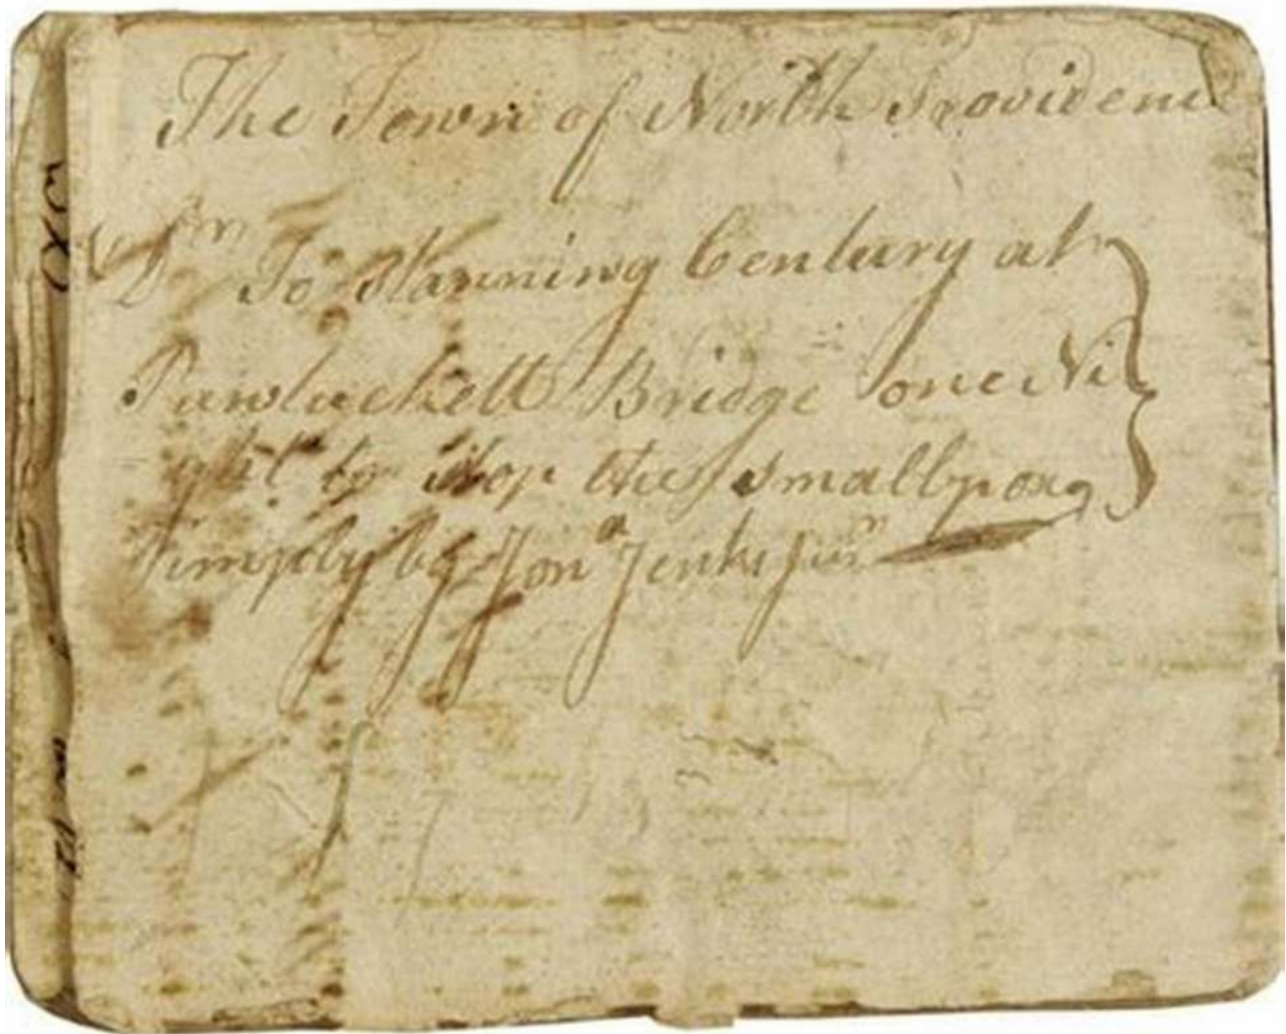 The Town of North Providence
Dr To Stanning Century at
Pawtuckett Bridge one Ni
ght to stop the smallpox
Simply by Jonn Jenks Junr